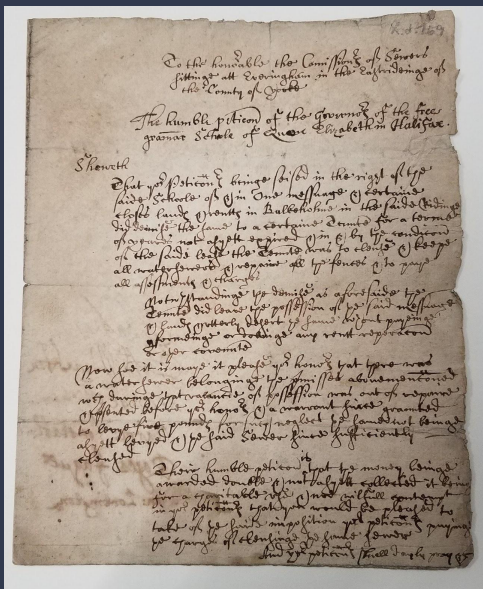 To the hono:able the Comission:s of Sewers
sittinge att Everingham in the Eastrideinge of
the County of Yorke
The humble peticon of the Governo:s of the free
gramar Schoole of Queene Elizabeth in Halifax.
Sheweth
That yo:r Peticon:rs beinge seised in the right of the
saide Schoole of & in one messuage & certaine
closes lands & rents in in the saide Ridinge
did demise the same to a certaine Tennte for a terme
of yeares not as yett expired & in & by the condicon
of the saide lease the Tennte was to clense & keepe
all watersewers & repaire all the fences & to paye
all assessments & charges
Notwithstandinge the demise as aforesaide the
Tennte did leave the possession of the said messuage
& lands & utterly desert the same without payinge
any rent reparacon
or other covennte
Now soe it is maye it please yo:r hono:rs that there was
a watersewer belonginge the p:misses abovementioned
w:ch duringe that of possession was out of repaire
& p:sented before yo:r hono:rs & a warrant since graunted
to levye five pounds for such neglect the same not beinge
as yett levyed & the said Sewer since sufficiently
clensed
Their humble peticon is that the money beinge
awarded double & not as yett collected it beinge
for a charitable use & noe wilfull contempt
in yo:r peticon:rs that you would be pleased to
take of the saide imposition yo:r peticon:rs payinge
the charge of clensinge the same sewer
And yo:r peticon:rs shall daylye pray &c